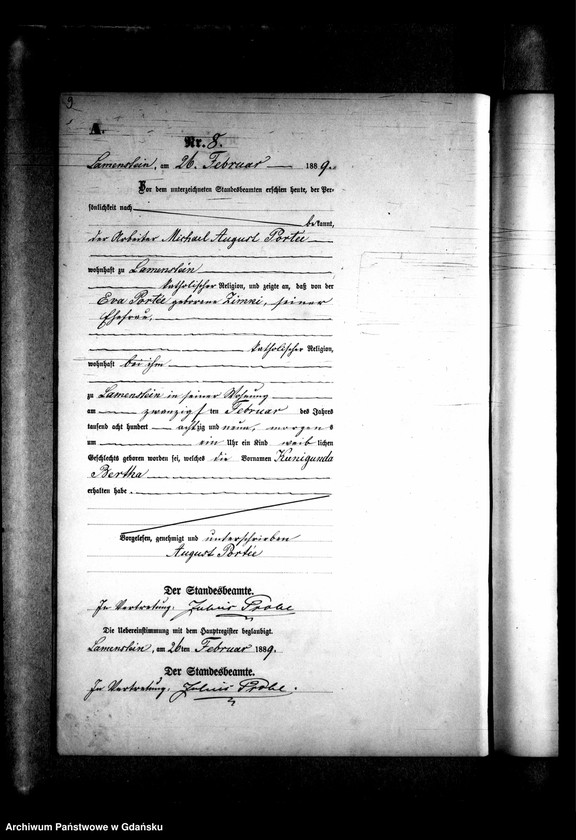 A.
Nr. 8.
Lamenstein, am 26. Februar 1889.
Vor dem unterzeichneten Standesbeamten erschien heute, der Per-
sönlichkeit nach
bekannt,
der Arbeiter Michael August Portee
wohnhaft zu Lamenstein
katholischer Religion, und zeigte an, daß von der
Eva Portee geborene Zimni, seiner
Ehefrau,
katholischer Religion,
wohnhaft bei ihm
zu Lamenstein in seiner Wohnung
am zwanzigsten Februar des Jahres
tausend acht hundert achtzig und neun, morgens
um ein Uhr ein Kind weiblichen
Geschlechts geboren worden sei, welches die Vornamen Kunigunda
Bertha
erhalten habe.
Vorgelesen, genehmigt und unterschrieben
August Portee
Der Standesbeamte.
In Vertretung: Julius Probe
Die Uebereinstimmung mit dem Hauptregister beglaubigt.
Lamenstein, am 26ten Februar 1889.
Der Standesbeamte.
In Vertretung: Julius Probe.
Archiwum Państwowe w Gdańsku